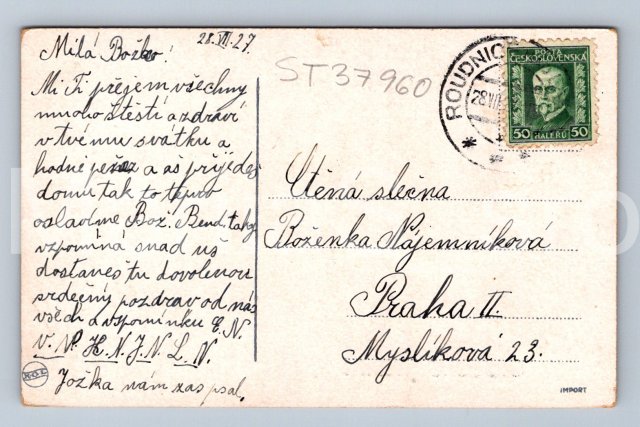 28.VII.27.
Milá Božko!
Mi Ti přejem všechny
mnoho štěstí a zdraví
v tvému svátku a
hodně peněz a aš přijedeš
domu tak to teprv
osladíme Bož. Bend. taky
vzpomíná snad uš
dostaneš tu dovolenou
srdečný pozdrav od nás
všech a vzpomínku E. N.
V. N. H. N. J. N. L. N.
Jožka nám zas psal.
ST37960
ROUDNIC
28.VII
POŠTA
ČESKOSLOVENSKÁ
50 HALÉŘŮ 50
Ctěná slečna
Boženka Nájemníková
Praha II.
Myslíková 23.
IMPORT